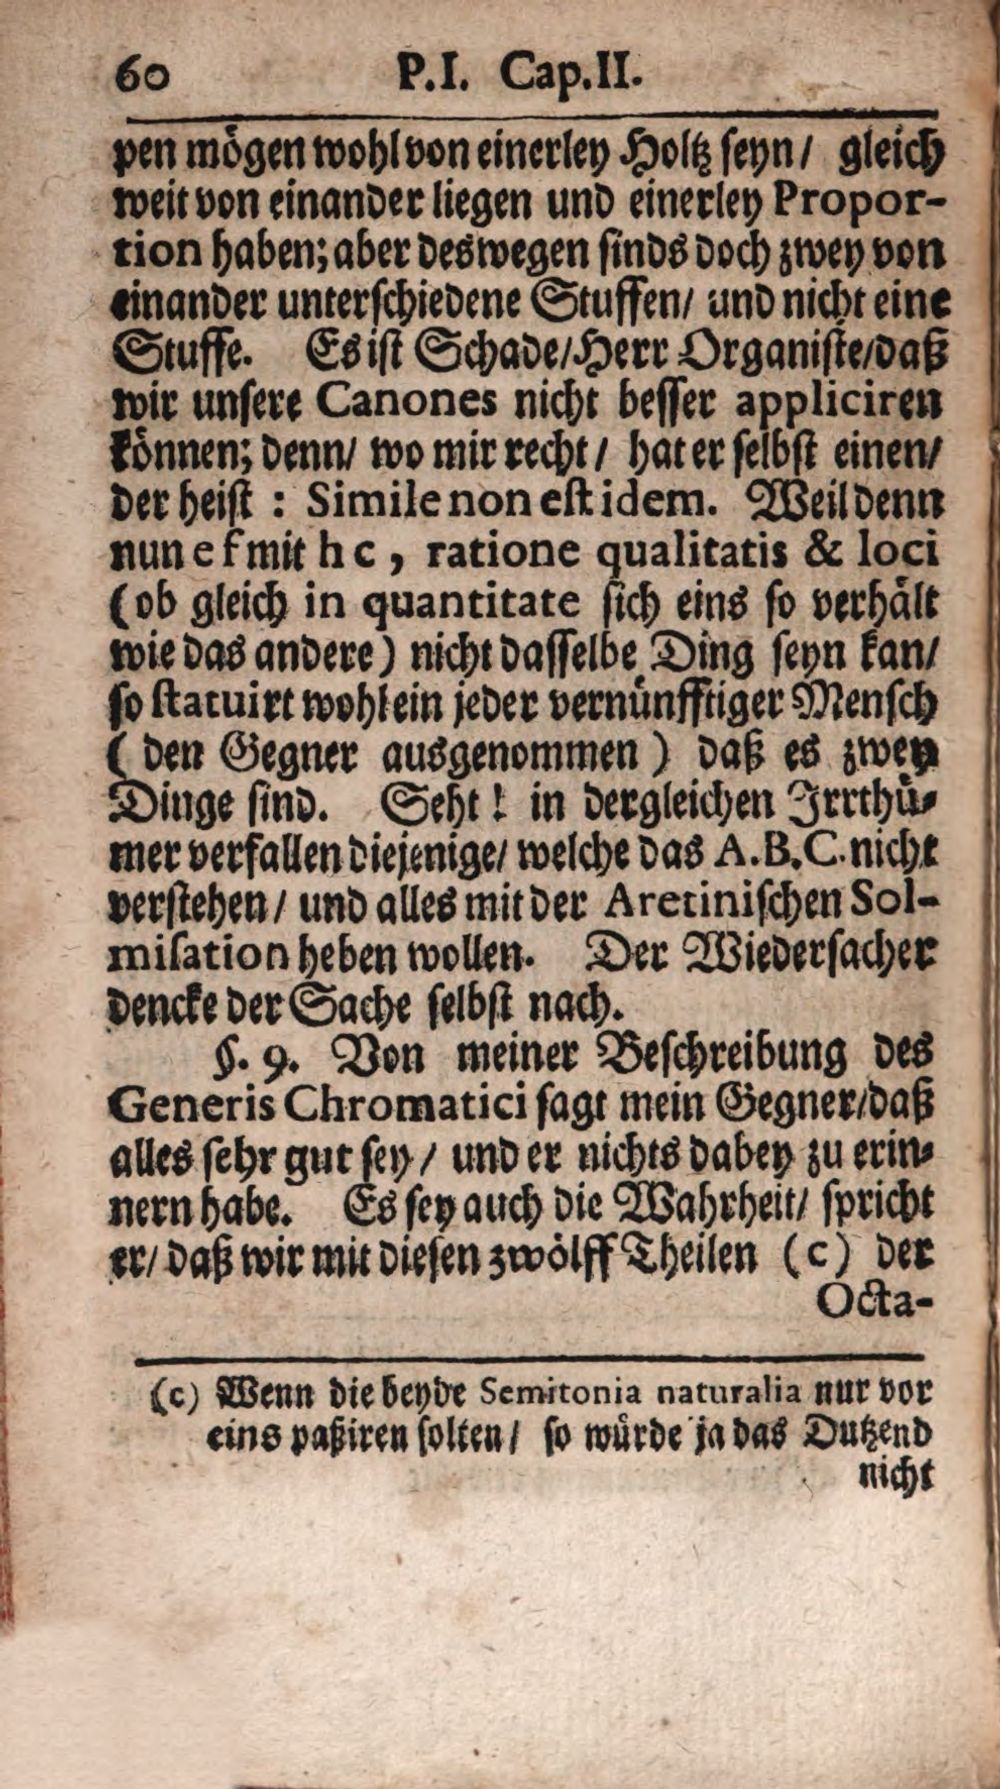 60 P.I. Cap.II.
pen mögen wohl von einerley Holtz seyn/ gleich
weit von einander liegen und einerley Propor-
tion haben; aber deswegen sinds doch zwey von
einander unterschiedene Stuffen/ und nicht eine
Stuffe. Es ist Schade/Herr Organiste/daß
wir unsere Canones nicht besser appliciren
können; denn/ wo mir recht/ hat er selbst einen/
der heist : Simile non est idem. Weil denn
nun e f mit h c, ratione qualitatis & loci
(ob gleich in quantitate sich eins so verhält
wie das andere) nicht dasselbe Ding seyn kan/
so statuirt wohl ein jeder vernünfftiger Mensch
(den Gegner ausgenommen) daß es zwey
Dinge sind. Seht! in dergleichen Irrthü-
mer verfallen diejenige/ welche das A.B.C. nicht
verstehen/ und alles mit der Aretinischen Sol-
misation heben wollen. Der Wiedersacher
dencke der Sache selbst nach.
§. 9. Von meiner Beschreibung des
Generis Chromatici sagt mein Gegner/daß
alles sehr gut sey/ und er nichts dabey zu erin-
nern habe. Es sey auch die Wahrheit/ spricht
er/ daß wir mit diesen zwölff Theilen (c) der
Octa-
(c) Wenn die beyde Semitonia naturalia nur vor
eins paßiren solten/ so würde ja das Dutzend
nicht